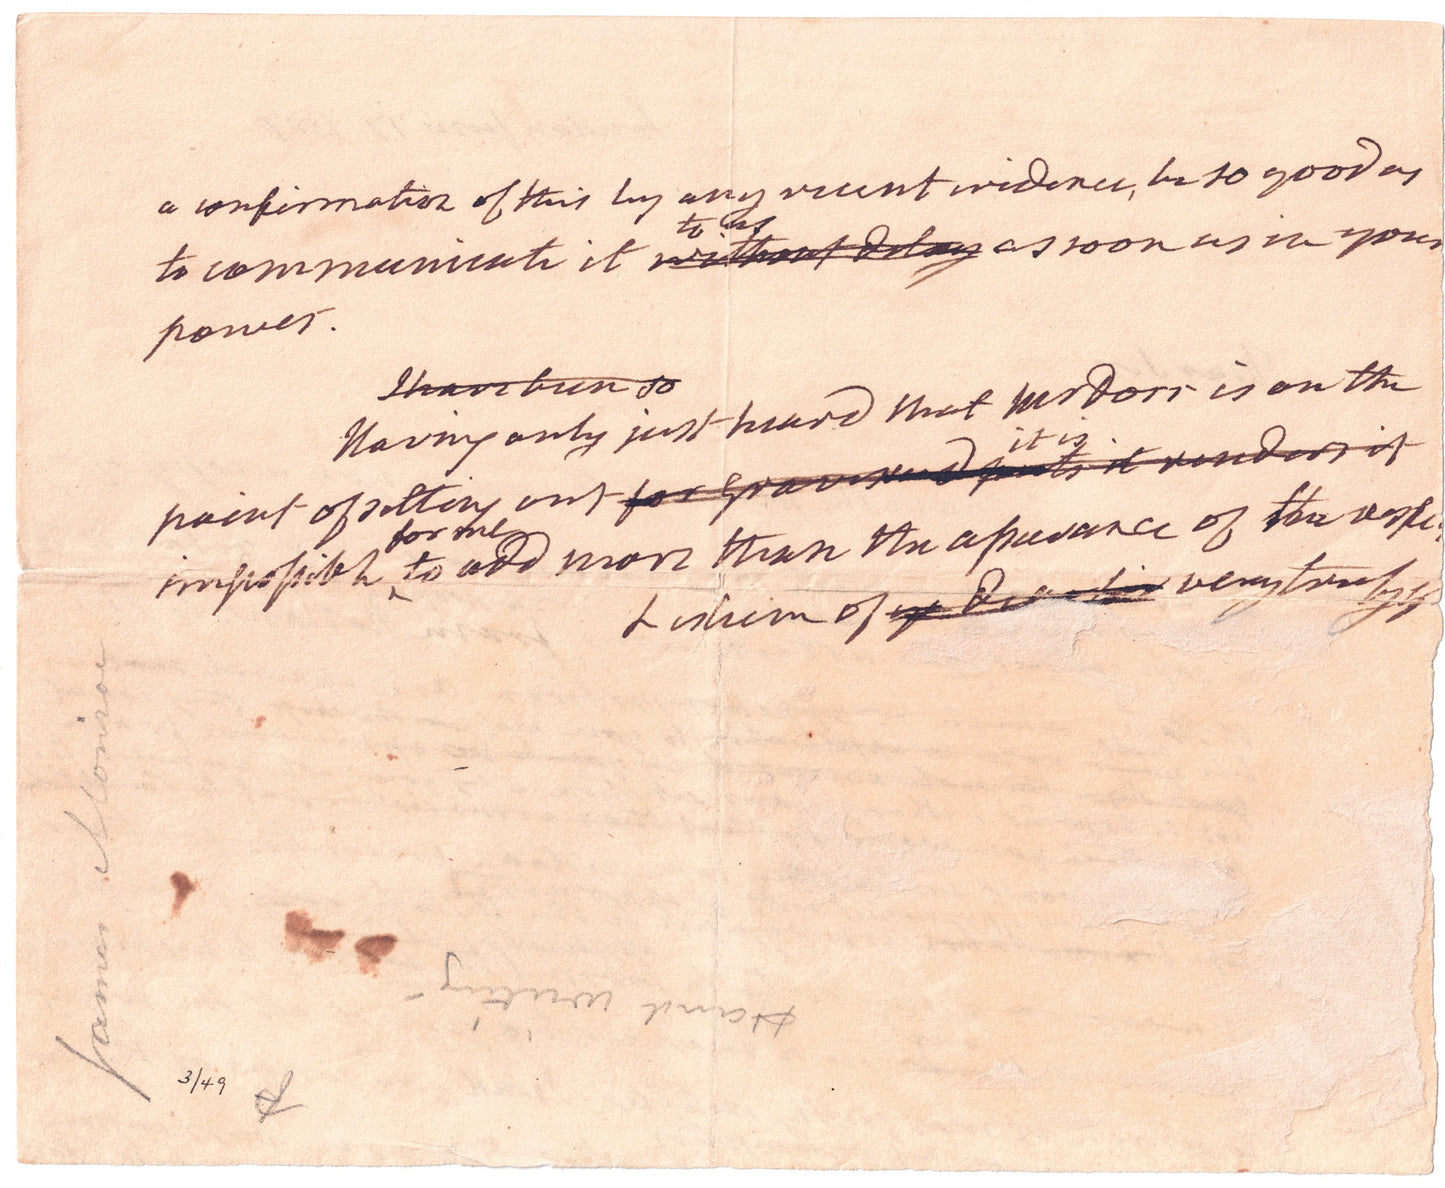 a confirmation of this by any recent evidence, be so good as
to us
to communicate it without delay as soon as in your
power.
I have been so
Having only just heard that Mr Dorr is on the
it is
point of setting out for Gravesend puts it renders it
for me
impossible to add more than the assurance of the respect
& esteem of very truly yr
James Monroe
Hand writing
3/49